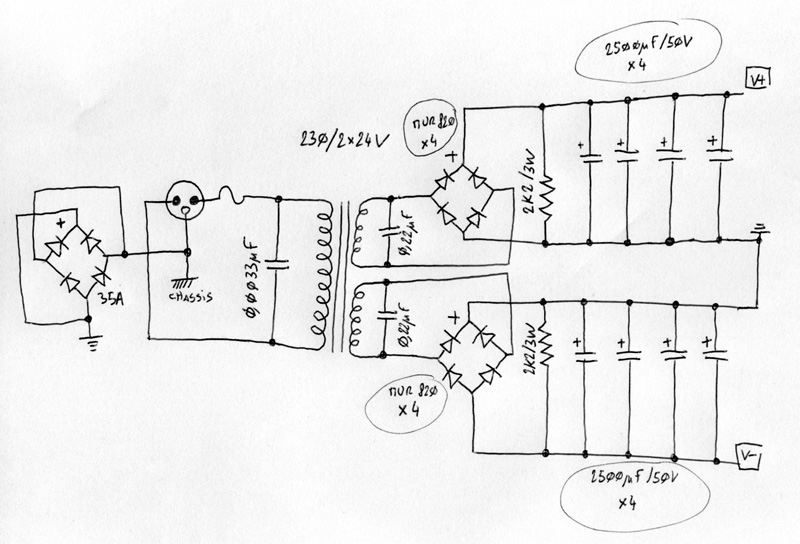 2500µF/50V
x4
V+
MUR 820
x4
230/2x24V
+
2K2/3W
+
+
+
+
0,22µF
+
0,0033µF
35A
CHASSIS
0,22µF
+
2K2/3W
+
+
+
+
MUR 820
x4
V-
2500µF/50V
x4